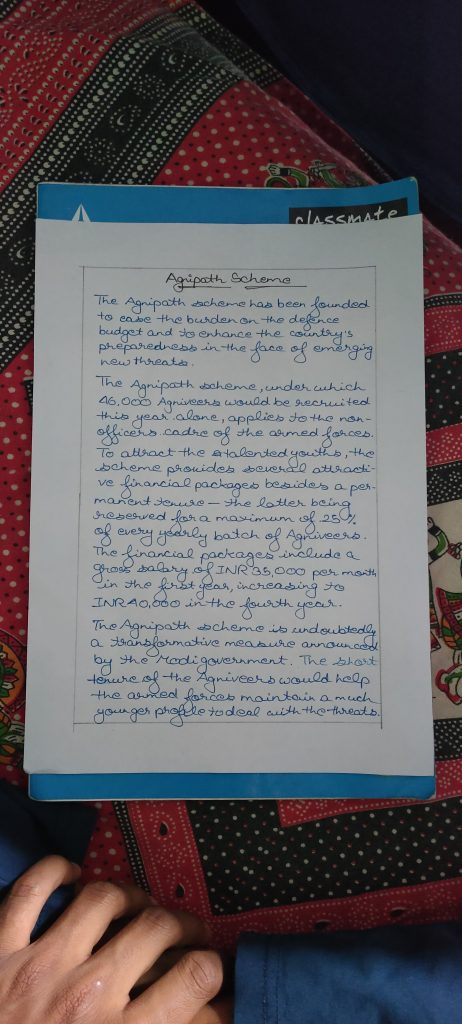 classmate
Agnipath Scheme
The Agnipath scheme has been founded
to ease the burden on the defence
budget and to enhance the country's
preparedness in the face of emerging
new threats.
The Agnipath scheme, under which
46,000 Agniveers would be recruited
this year alone, applies to the non-
officers cadre of the armed forces.
To attract the talented youths, the
scheme provides several attracti-
ve financial packages besides a per-
manent tenure — the latter being
reserved for a maximum of 25%
of every yearly batch of Agniveers.
The financial packages include a
gross salary of INR 35,000 per month
in the first year, increasing to
INR 40,000 in the fourth year.
The Agnipath scheme is undoubtedly
a transformative measure announced
by the Modi government. The short
tenure of the Agniveers would help
the armed forces maintain a much
younger profile to deal with the threats.